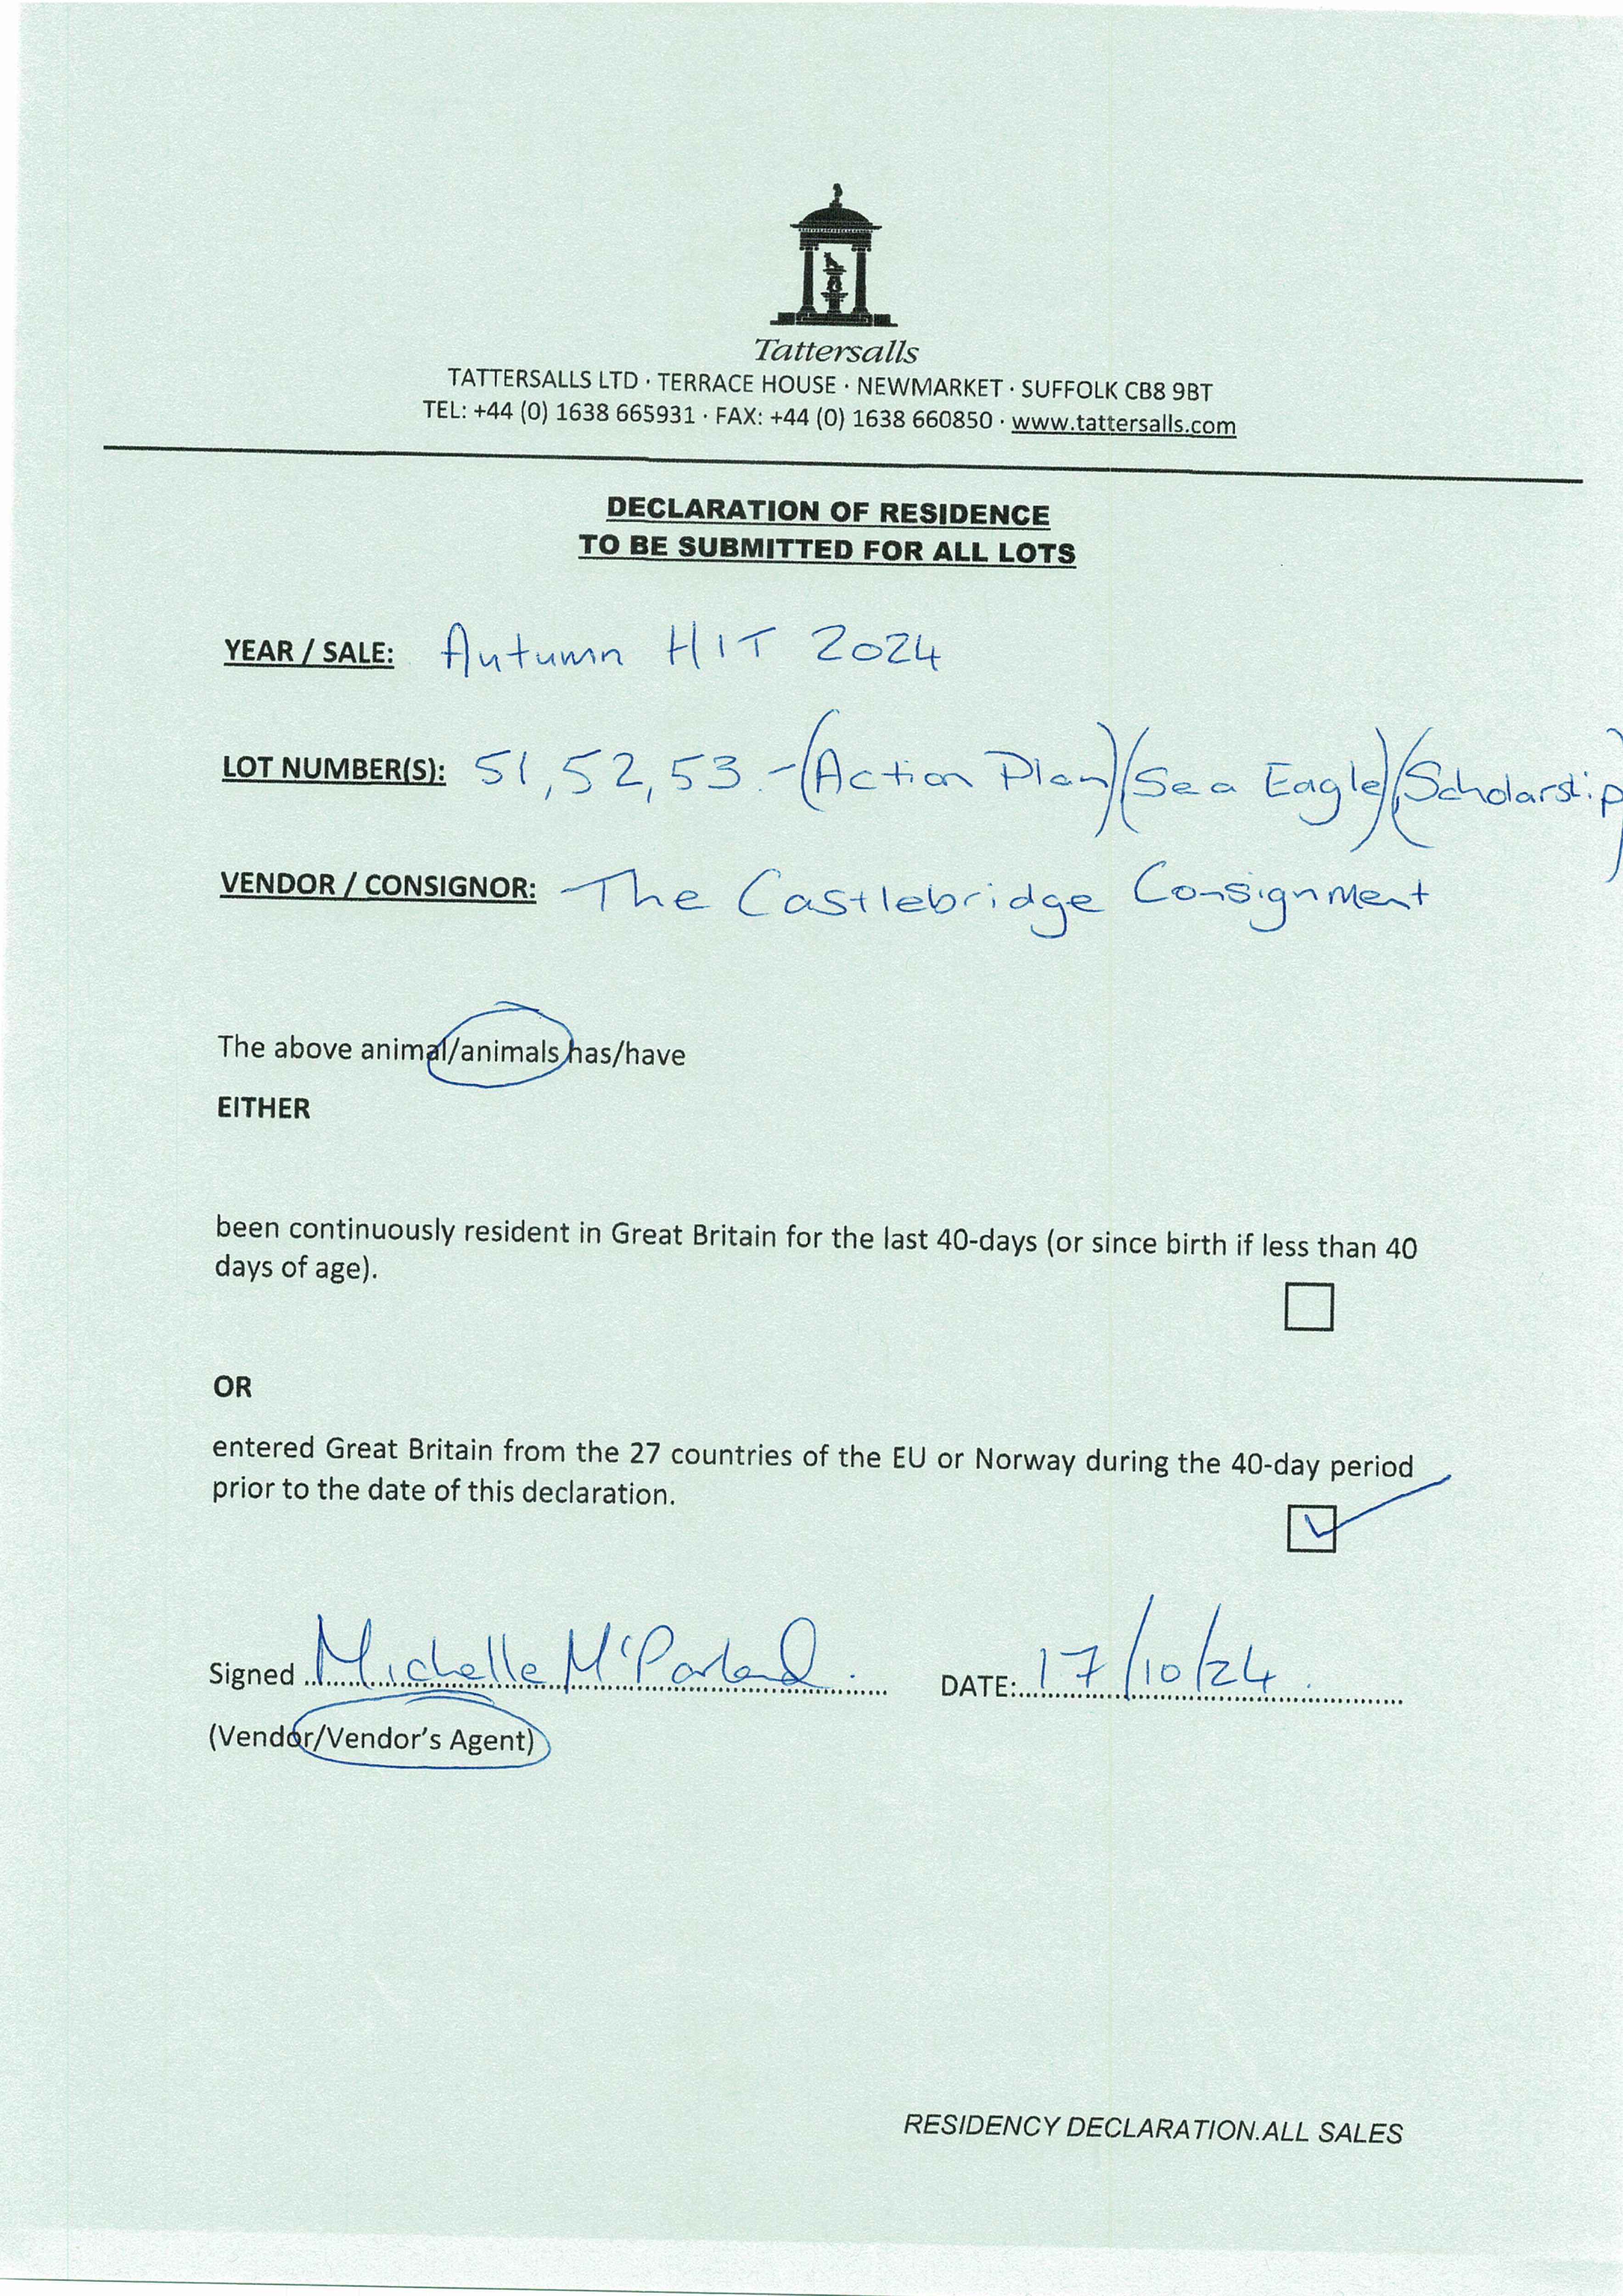 Tattersalls
TATTERSALLS LTD · TERRACE HOUSE · NEWMARKET · SUFFOLK CB8 9BT
TEL: +44 (0) 1638 665931 · FAX: +44 (0) 1638 660850 · www.tattersalls.com
DECLARATION OF RESIDENCE
TO BE SUBMITTED FOR ALL LOTS
YEAR / SALE: Autumn HIT 2024
LOT NUMBER(S): 51, 52, 53 - (Action Plan) (Sea Eagle), (Scholarship)
VENDOR / CONSIGNOR: The Castlebridge Consignment
The above animal/animals has/have
EITHER
been continuously resident in Great Britain for the last 40-days (or since birth if less than 40
days of age).
OR
entered Great Britain from the 27 countries of the EU or Norway during the 40-day period
prior to the date of this declaration.
Signed Michelle McParland DATE: 17/10/24
(Vendor/Vendor's Agent)
RESIDENCY DECLARATION.ALL SALES